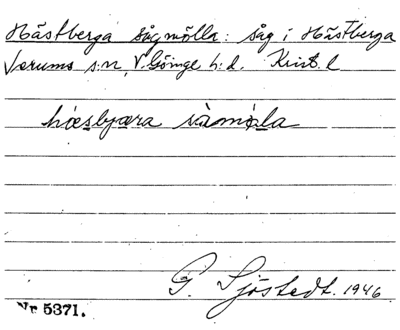 Hästberga sågmölla: såg i Hästberga
Verums s:n, V. Göinge h:d. Krist. l
hæsbjæra såmøla
G. Sjöstedt. 1946
Nr 5371.